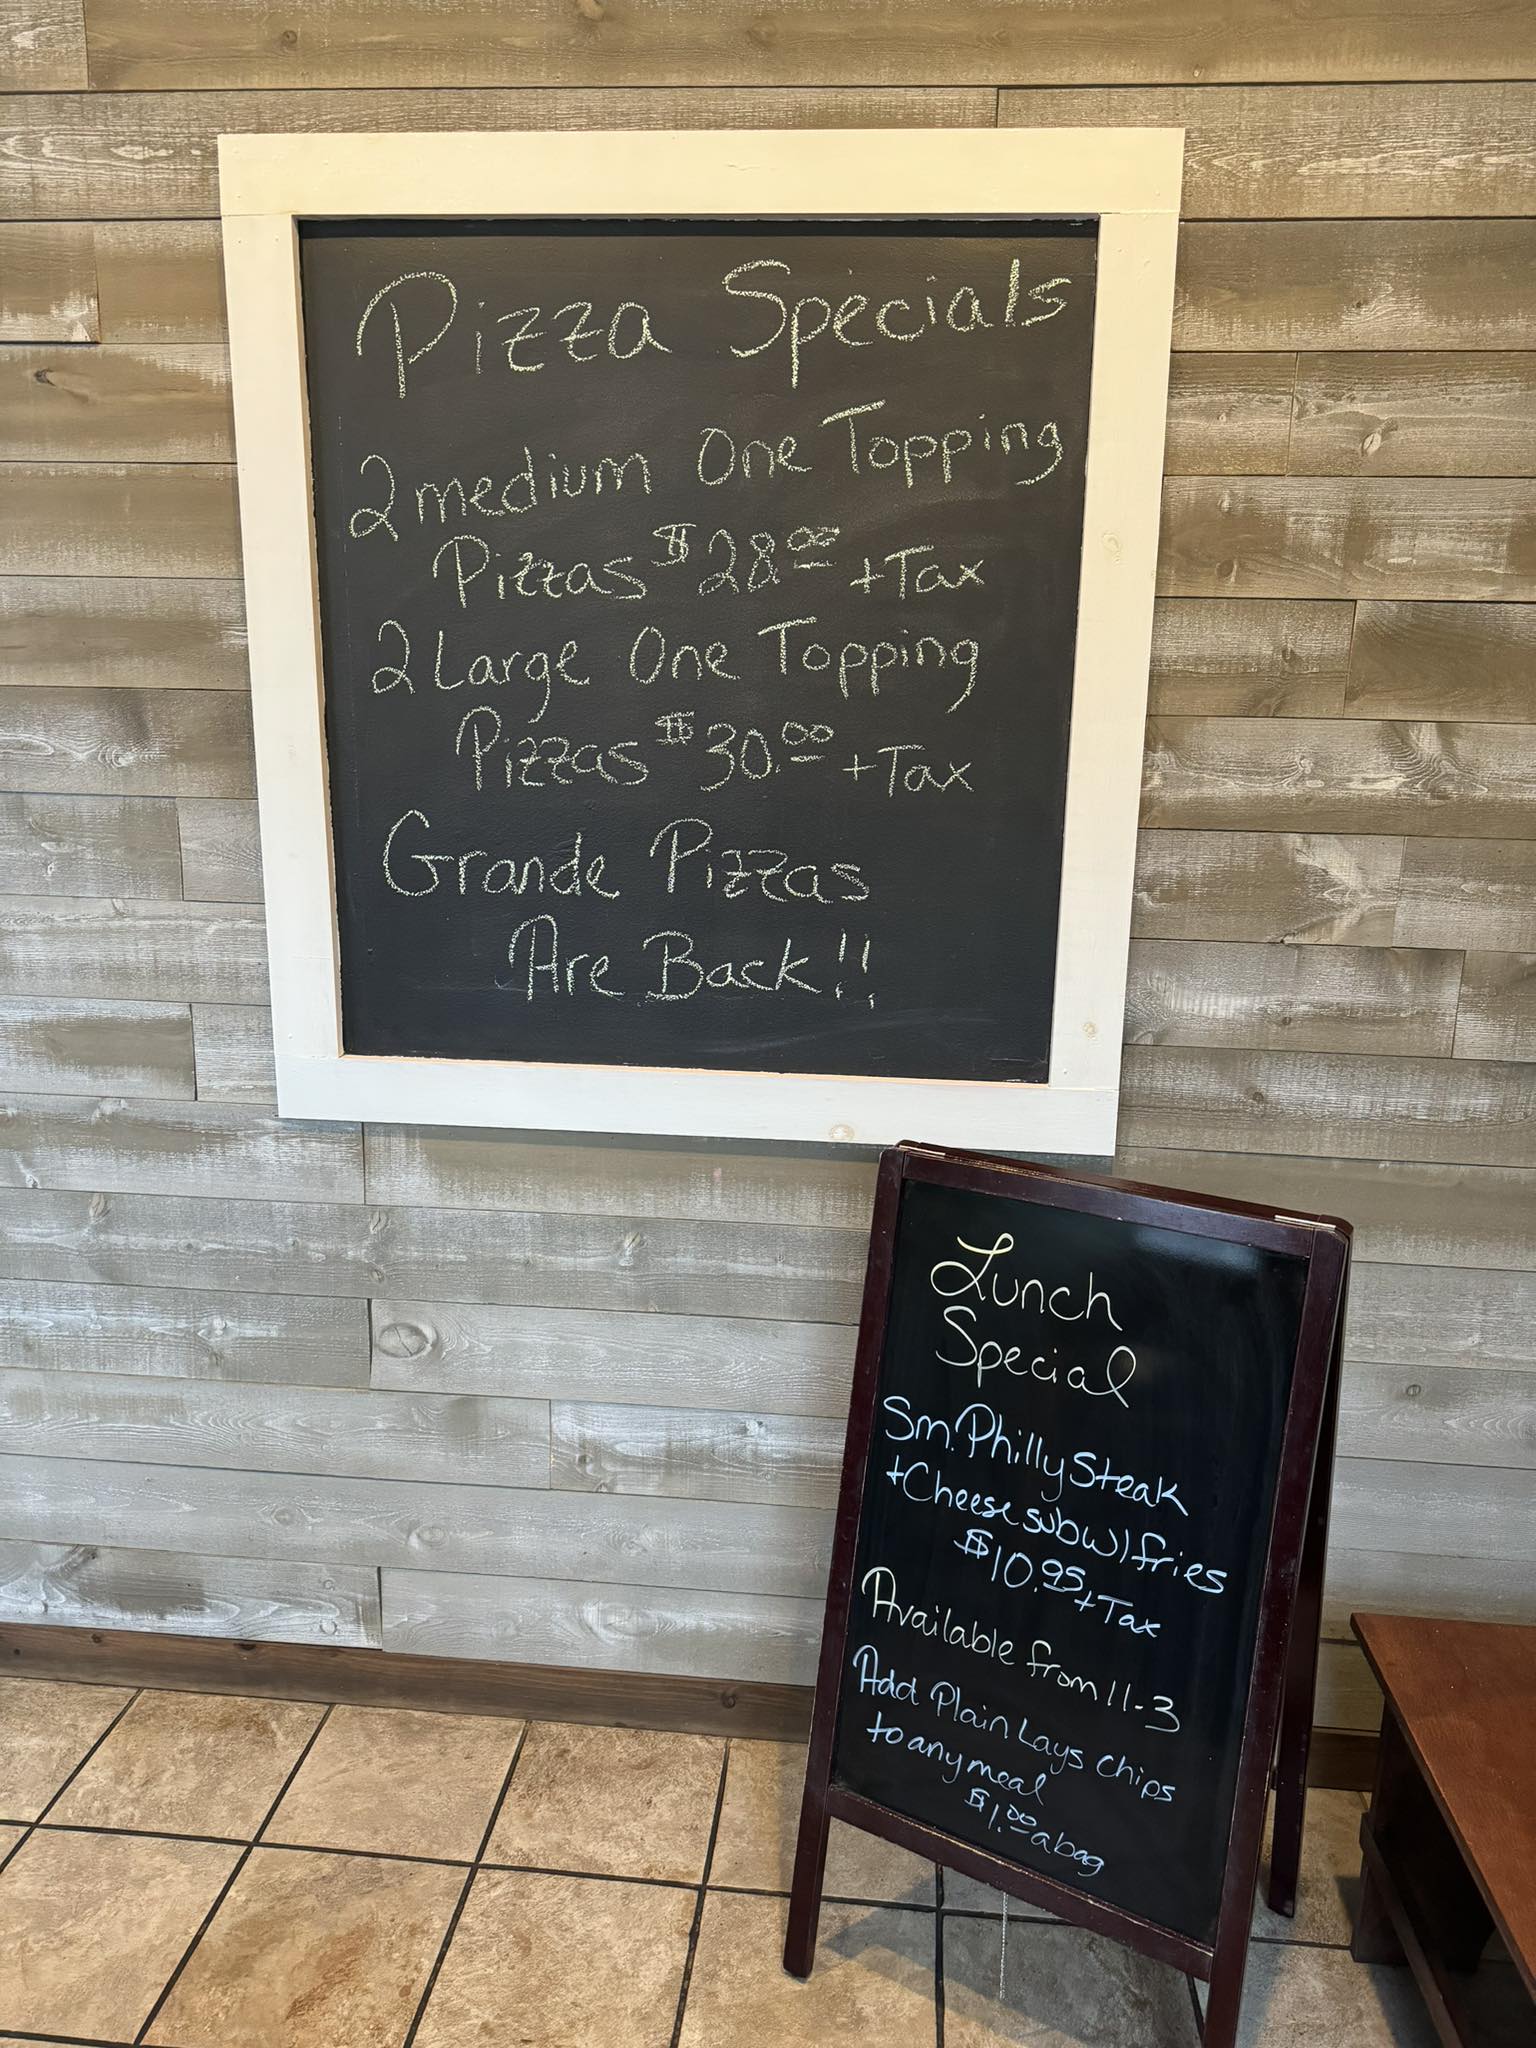 Pizza Specials
2 medium One Topping
Pizzas $28.00 + Tax
2 Large One Topping
Pizzas $30.00 + Tax
Grande Pizzas
Are Back!!
Lunch
Special
Sm. Philly Steak
+ Cheese sub w/ fries
$10.95 + Tax
Available from 11-3
Add Plain Lays Chips
to any meal
$1.00 a bag